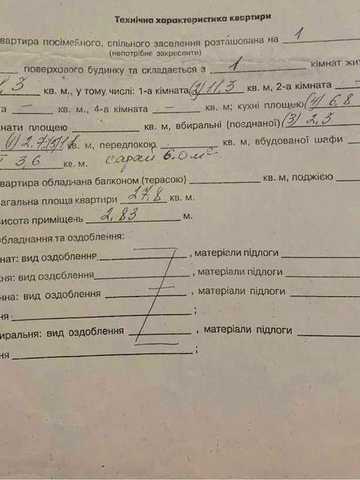 Технічна характеристика квартири
вартира посімейного, спільного заселення розташована на 1
(непотрібне закреслити)
поверхового будинку та складається з 1 кімнат жи
,3 кв. м., у тому числі: 1-а кімната 11,3 кв. м, 2-а кімната —
та — кв. м., 4-а кімната — кв. м; кухні площею (4) 6,8
нати площею кв. м, вбиральні (поєднаної) (3) 2,3
кв. м, передпокою кв. м, вбудованої шафи
3,6 кв. м. сарай 6.0 м²
вартира обладнана балконом (терасою) кв. м, лоджією
агальна площа квартири 27.8 кв. м.
исота приміщень 2,83 м.
обладнання та оздоблення:
нат: вид оздоблення , матеріали підлоги
ня: вид оздоблення , матеріали підлоги
нна: вид оздоблення , матеріали підлоги
ня ;
иральня: вид оздоблення , матеріали підлоги
ня ;